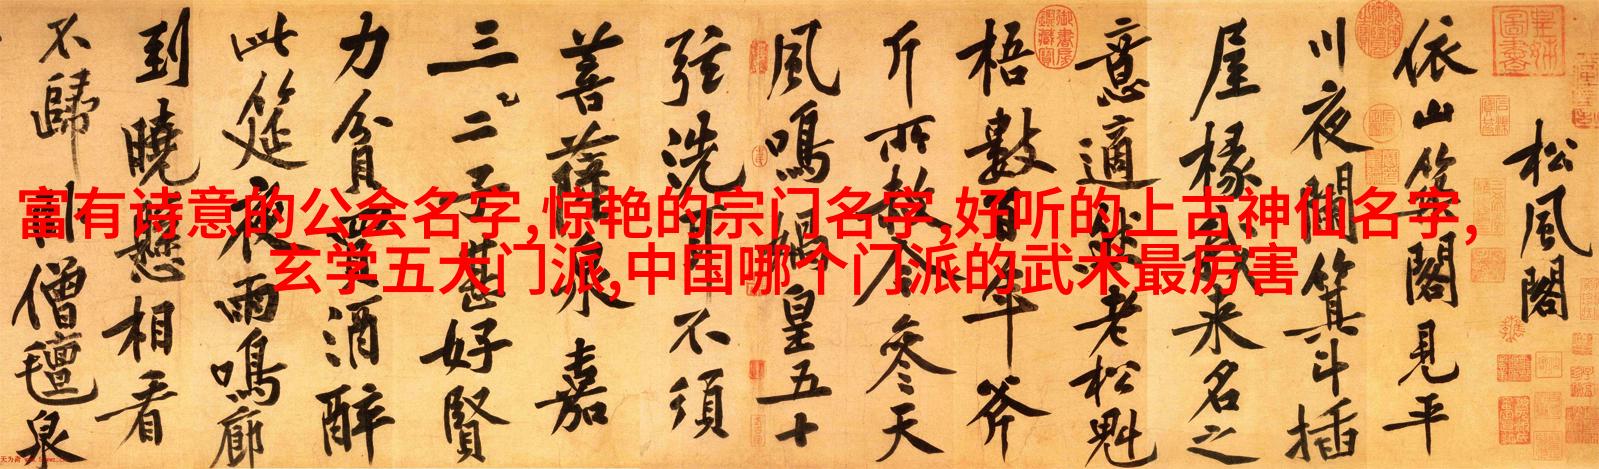 富有诗意的公会名字,惊艳的宗门名字,好听的上古神仙名字,
玄学五大门派,中国哪个门派的武术最厉害
松風閣
依山築閣見平
川夜闌箕斗插
屋椽我來名之
意適然老松魁
梧數百年斧
斤所赦今參天
風鳴媧皇五十
弦洗耳不須
菩薩泉嘉
三二子甚好賢
力貧買酒醉
此筵夜雨鳴廊
到曉懸相看
不歸卧僧氈泉